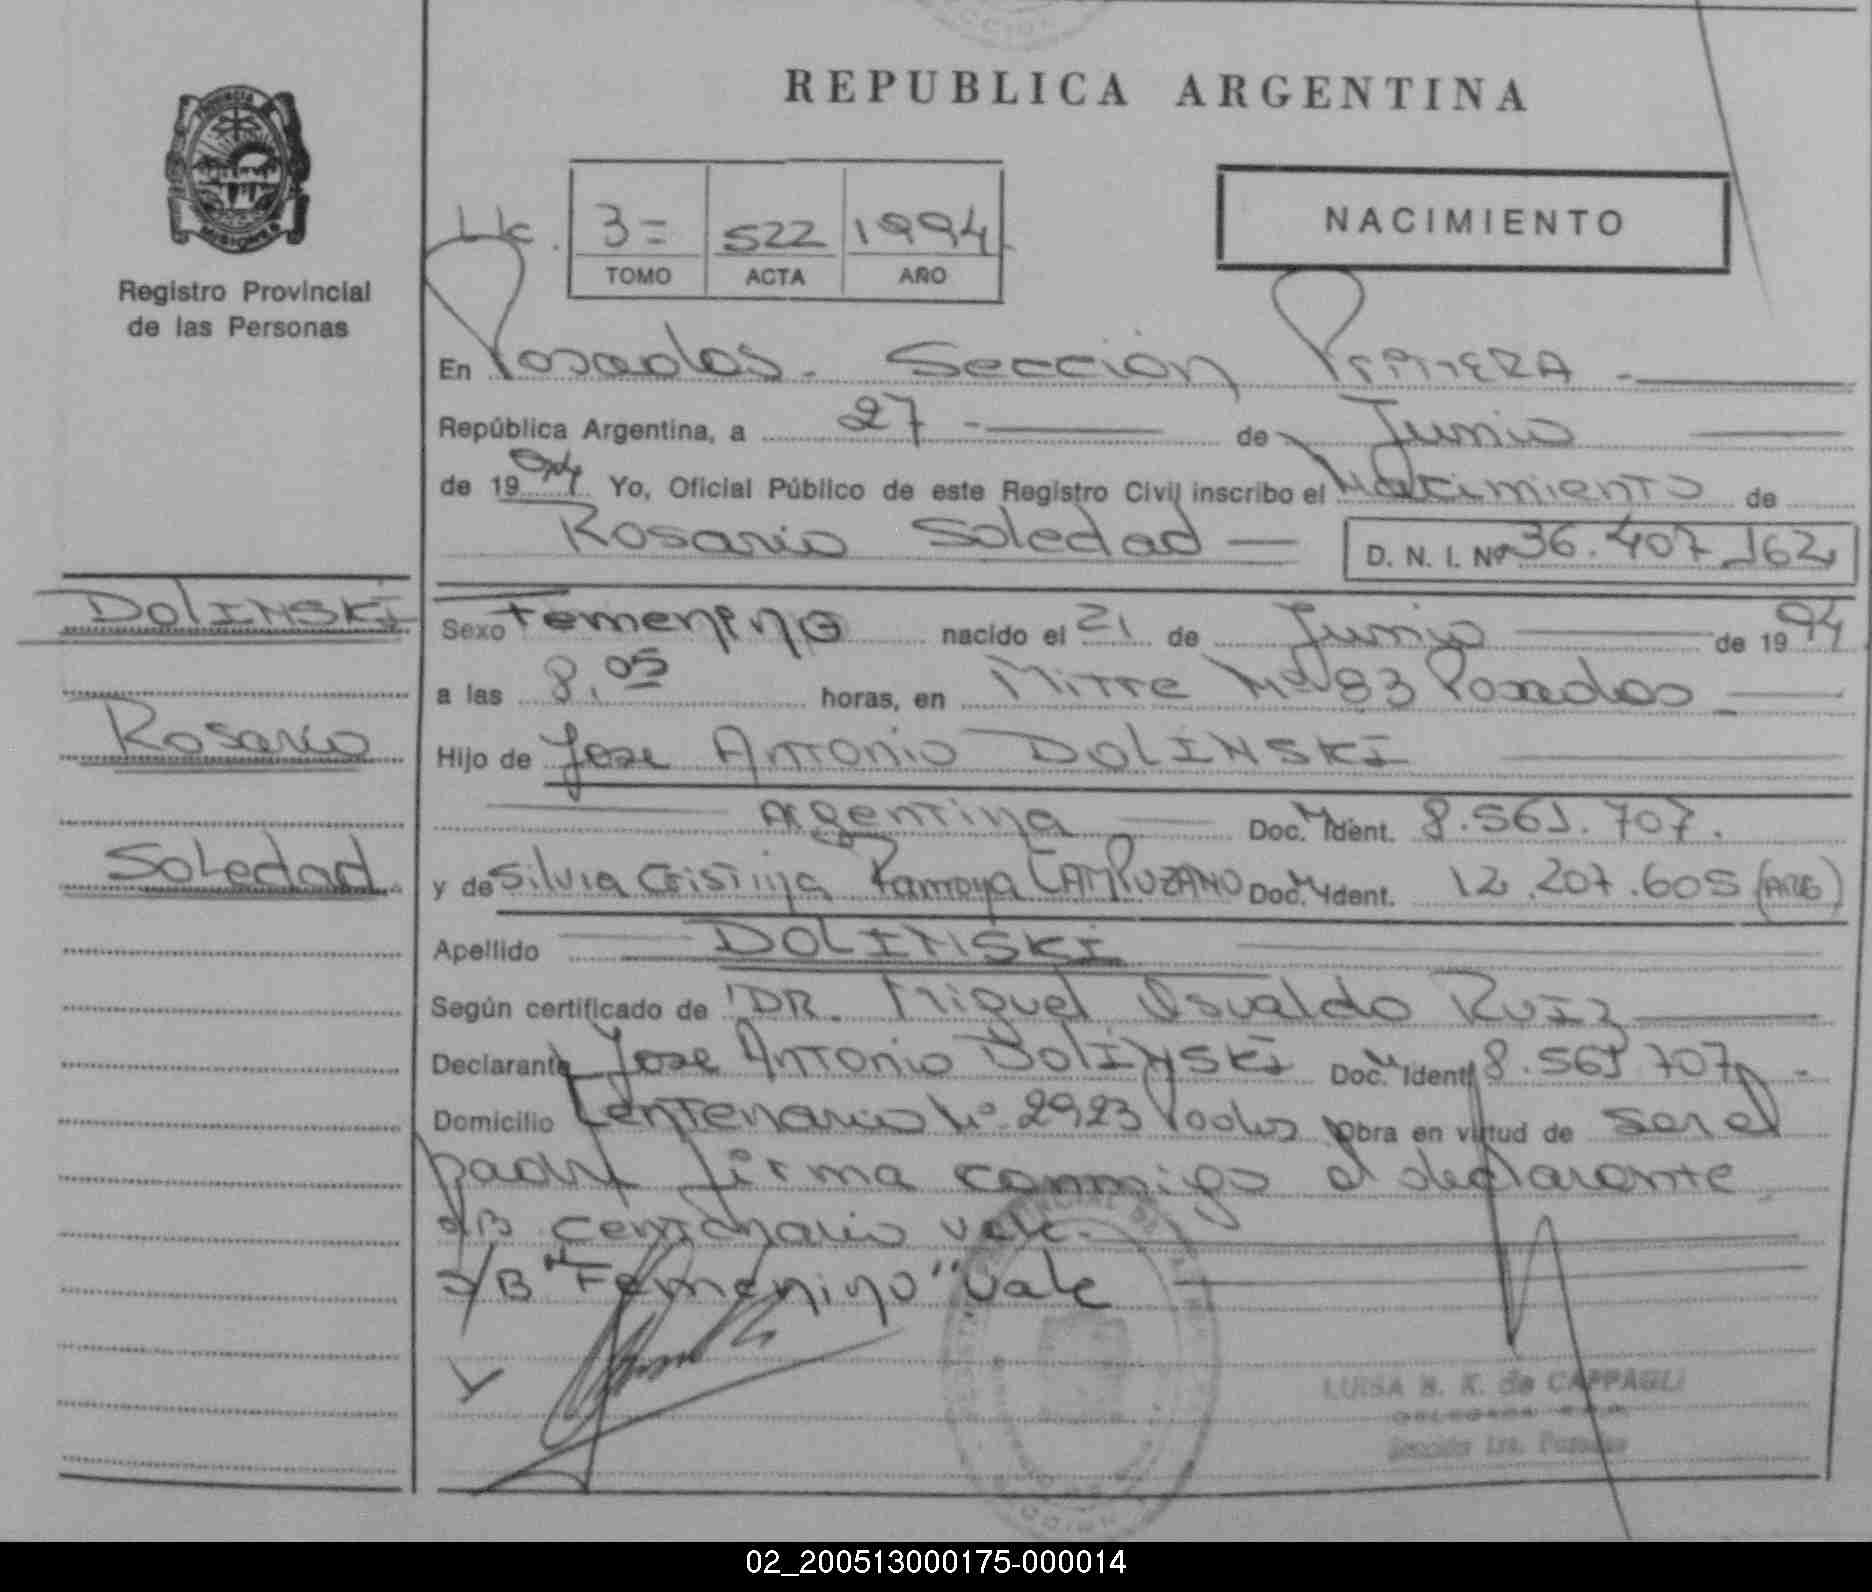 REPUBLICA ARGENTINA
PROVINCIA
MISIONES
Registro Provincial
de las Personas
3= 522 1994
TOMO ACTA AÑO
NACIMIENTO
En Posadas. Sección Primera
República Argentina, a 27 de Junio
de 1994 Yo, Oficial Público de este Registro Civil inscribo el Nacimiento de
Rosario Soledad D. N. I. Nº 36.407.162
DOLINSKI
Rosario
Soledad
Sexo Femenino nacido el 21 de Junio de 1994
a las 8,05 horas, en Mitre Nº 83 Posadas
Hijo de Jose Antonio DOLINSKI
Argentina Doc. M Ident. 8.561.707.
y de Silvia Cristina Ramona CAMPUZANO Doc. M Ident. 12.207.605 (ARG)
Apellido DOLINSKI
Según certificado de DR. Miguel Osvaldo RUIZ
Declarante Jose Antonio DOLINSKI Doc. M Ident. 8.561.707
Domicilio Centenario Nº 2923 Pdas obra en virtud de ser el
padre firma conmigo el declarante
s/B Centenario vale.
s/B "Femenino" vale
LUISA K. de CAPPAGLI
DELEGADA
Sección 1ra. Posadas
02_200513000175-000014